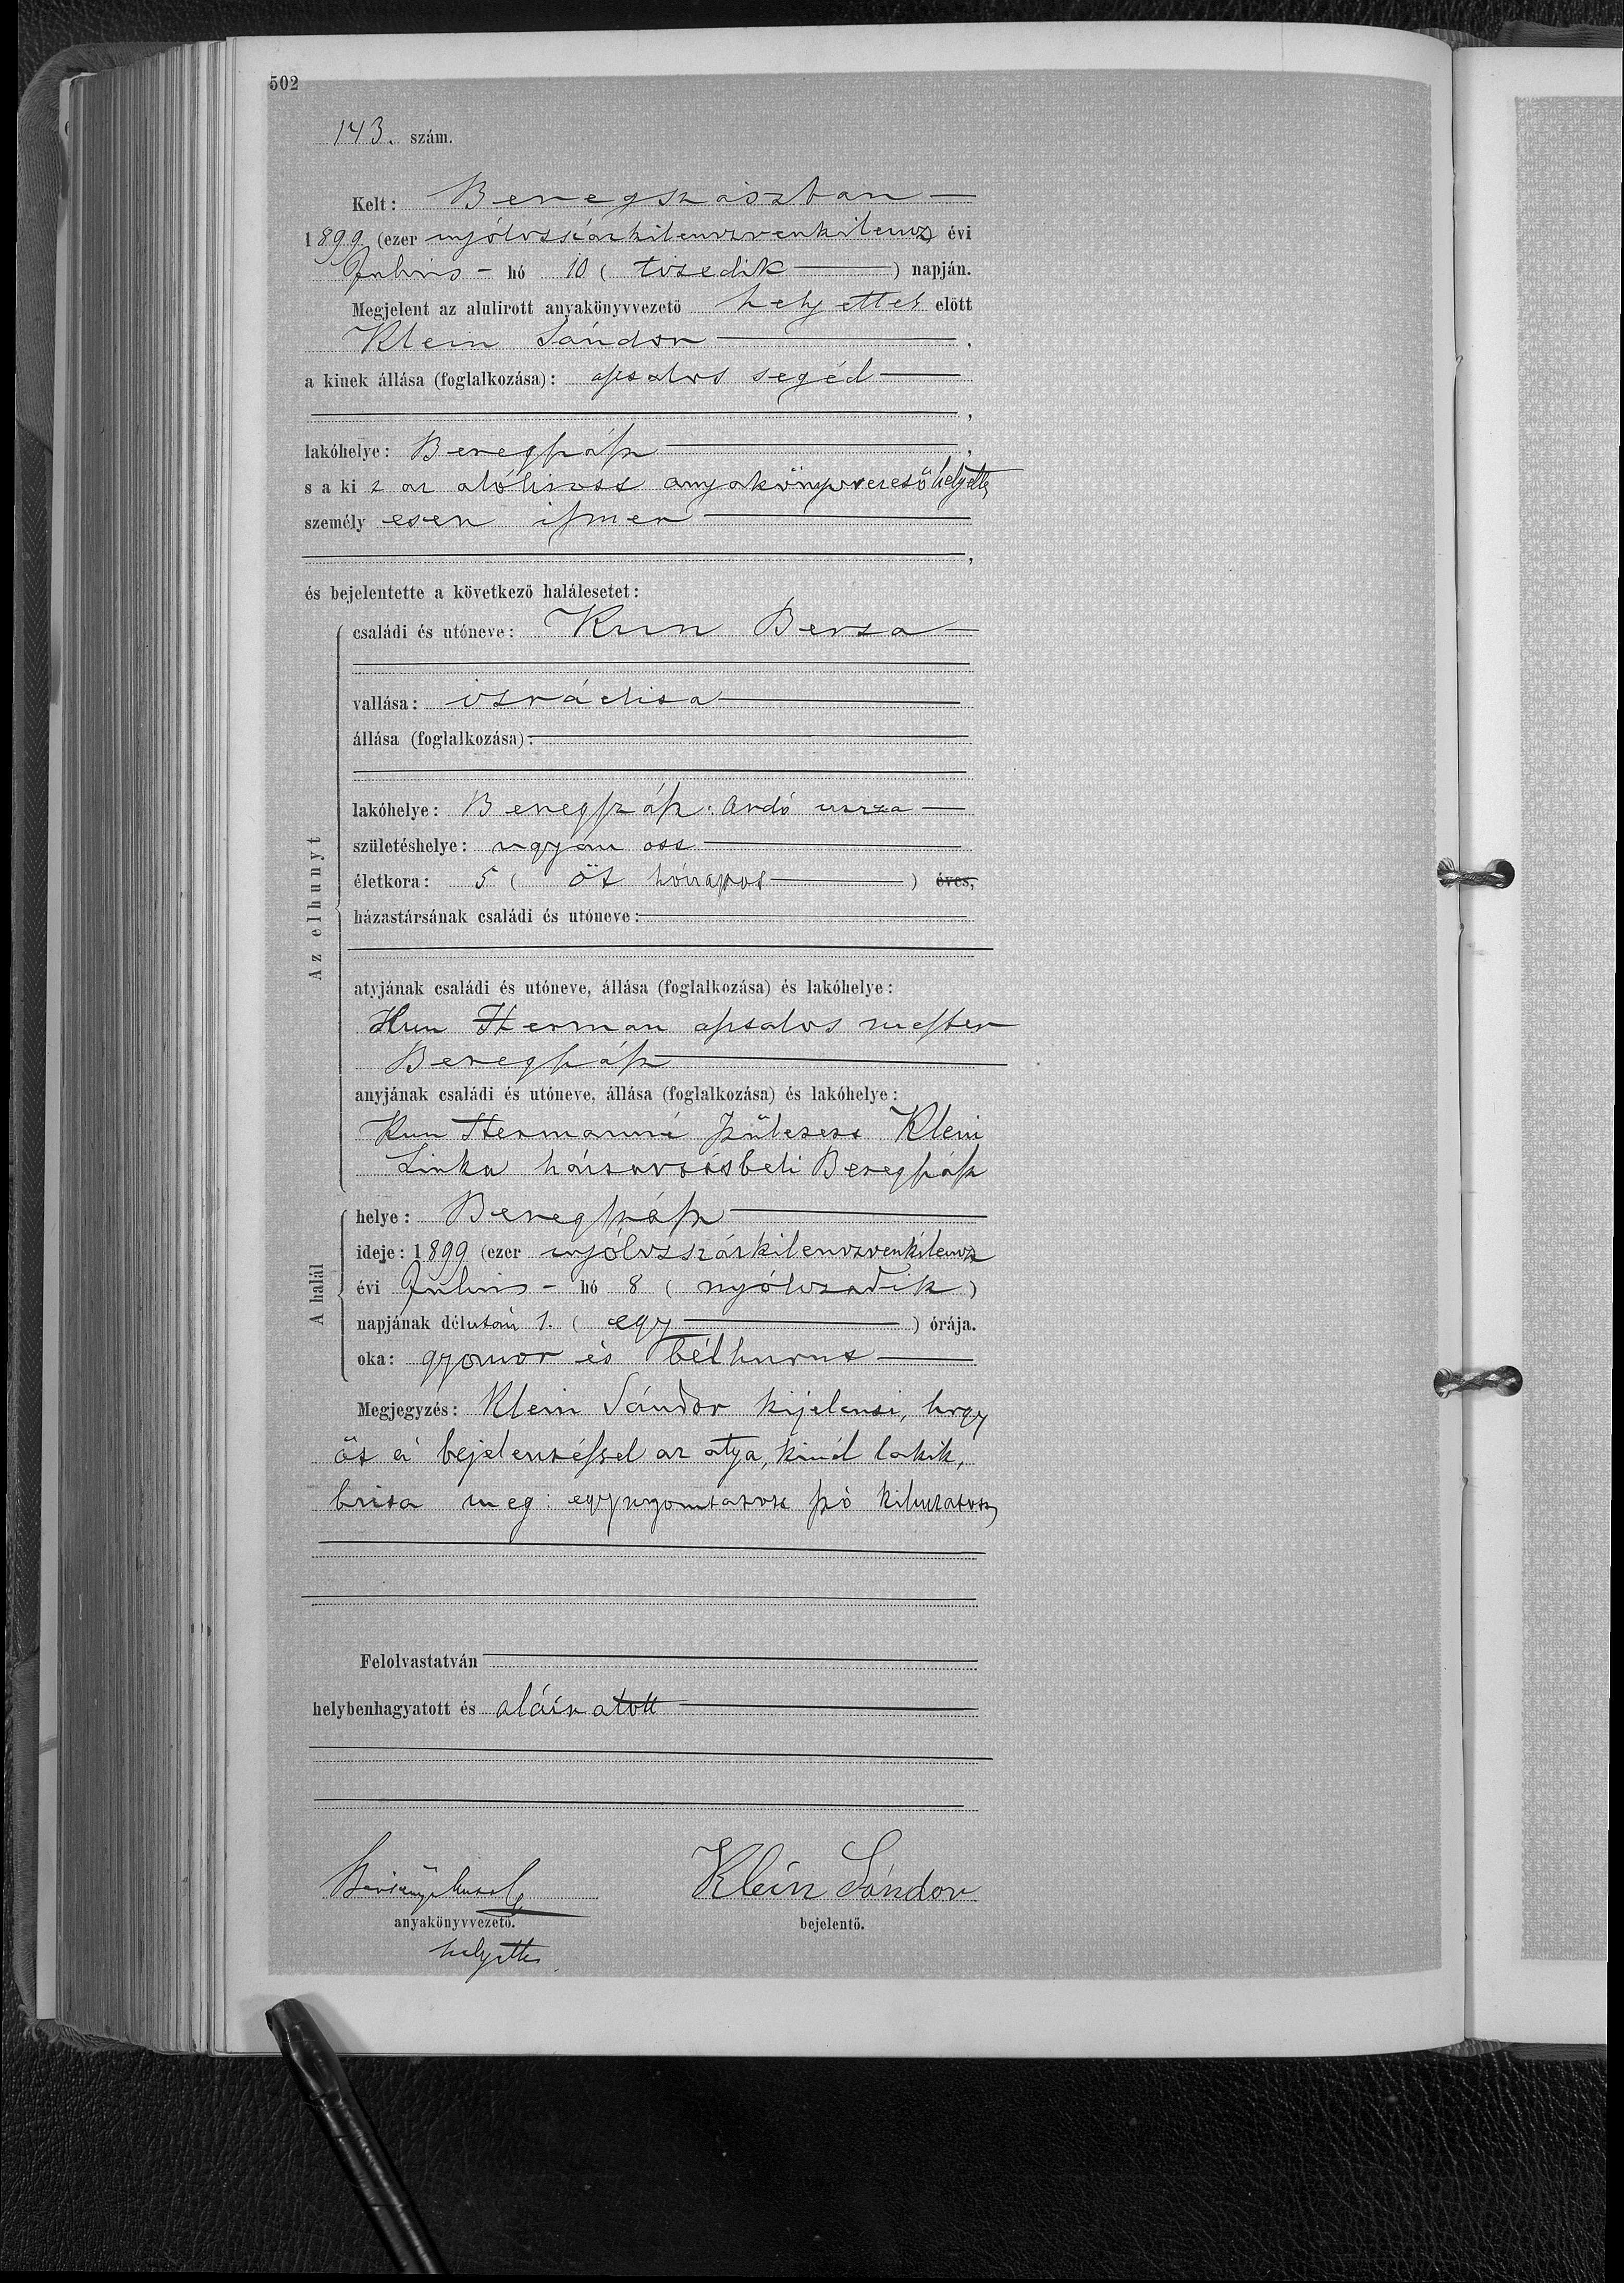 502
143. szám.
Kelt: Beregszászban
1899 (ezer nyólcszázkilenczvenkilencz) évi
Julius - hó 10 ( tizedik ) napján.
Megjelent az alulirott anyakönyvvezető helyettes előtt
Klein Sándor ,
a kinek állása (foglalkozása): asztalos segéd
,
lakóhelye: Beregszász ,
s a kit az alólirott anyakönyvvezető helyettes
személyesen ismer
,
és bejelentette a következő halálesetet:
Az elhunyt
családi és utóneve: Kun Berta
vallása: izráelita
állása (foglalkozása):
lakóhelye: Beregszász: Ardó utcza
születéshelye: ugyan ott
életkora: 5 ( öt hónapos ) éves,
házastársának családi és utóneve:
atyjának családi és utóneve, állása (foglalkozása) és lakóhelye:
Kun Herman asztalos mester
Beregszász
anyjának családi és utóneve, állása (foglalkozása) és lakóhelye:
Kun Hermanné született Klein
Linka háztartásbeli Beregszász
A halál
helye: Beregszász
ideje: 1899 (ezer nyólczszázkilenczvenkilencz
évi Julius - hó 8 ( nyólczadik )
napjának délután 1. ( egy ) órája.
oka: gyomor és bélhurut
Megjegyzés: Klein Sándor kijelenti, hogy
őt a bejelentéssel az atya, kinél lakik,
bizta meg: egy nyomtatott szó kihuzatott,
Felolvastatván
helybenhagyatott és aláiratott
Klein Sándor
anyakönyvvezető. bejelentő.
helyettes